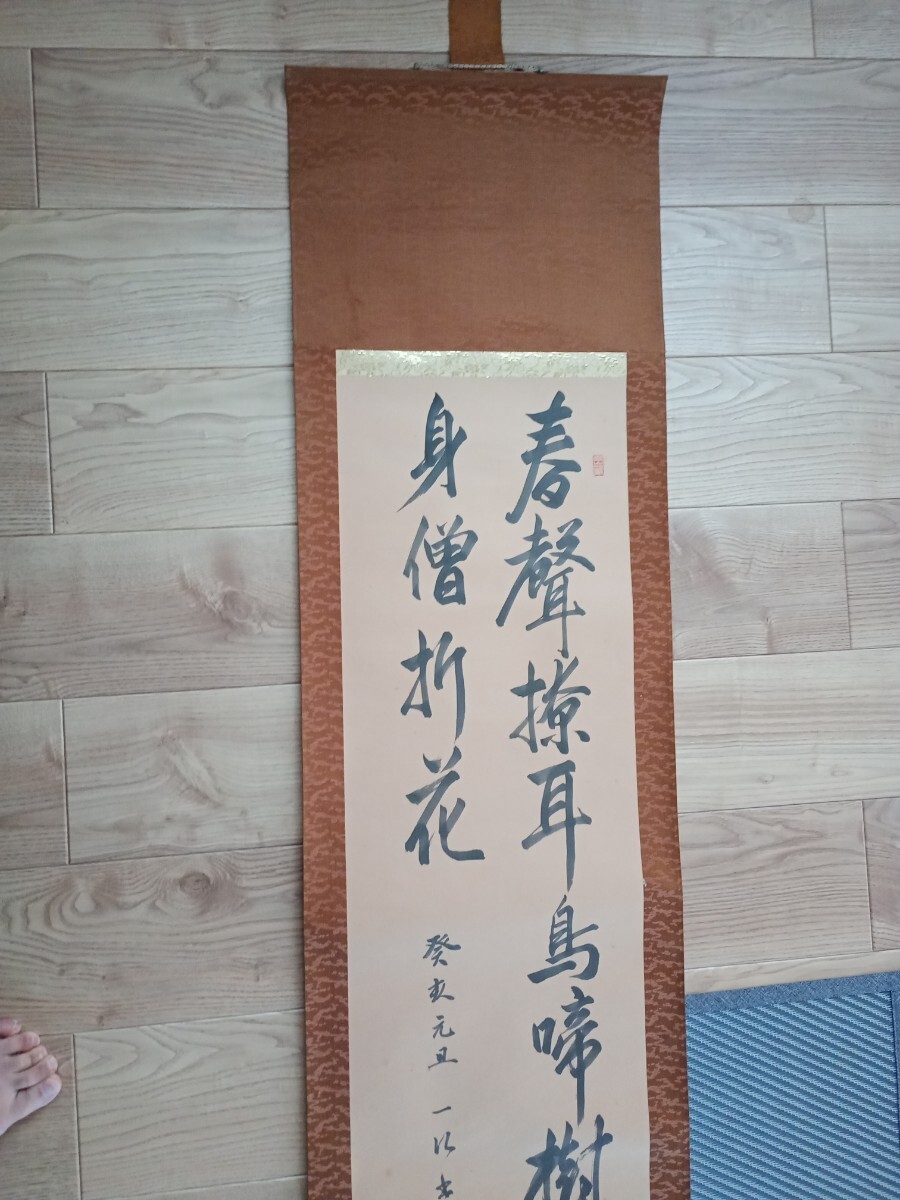 春聲撩耳鳥啼樹
身僧折花
癸亥元旦 一